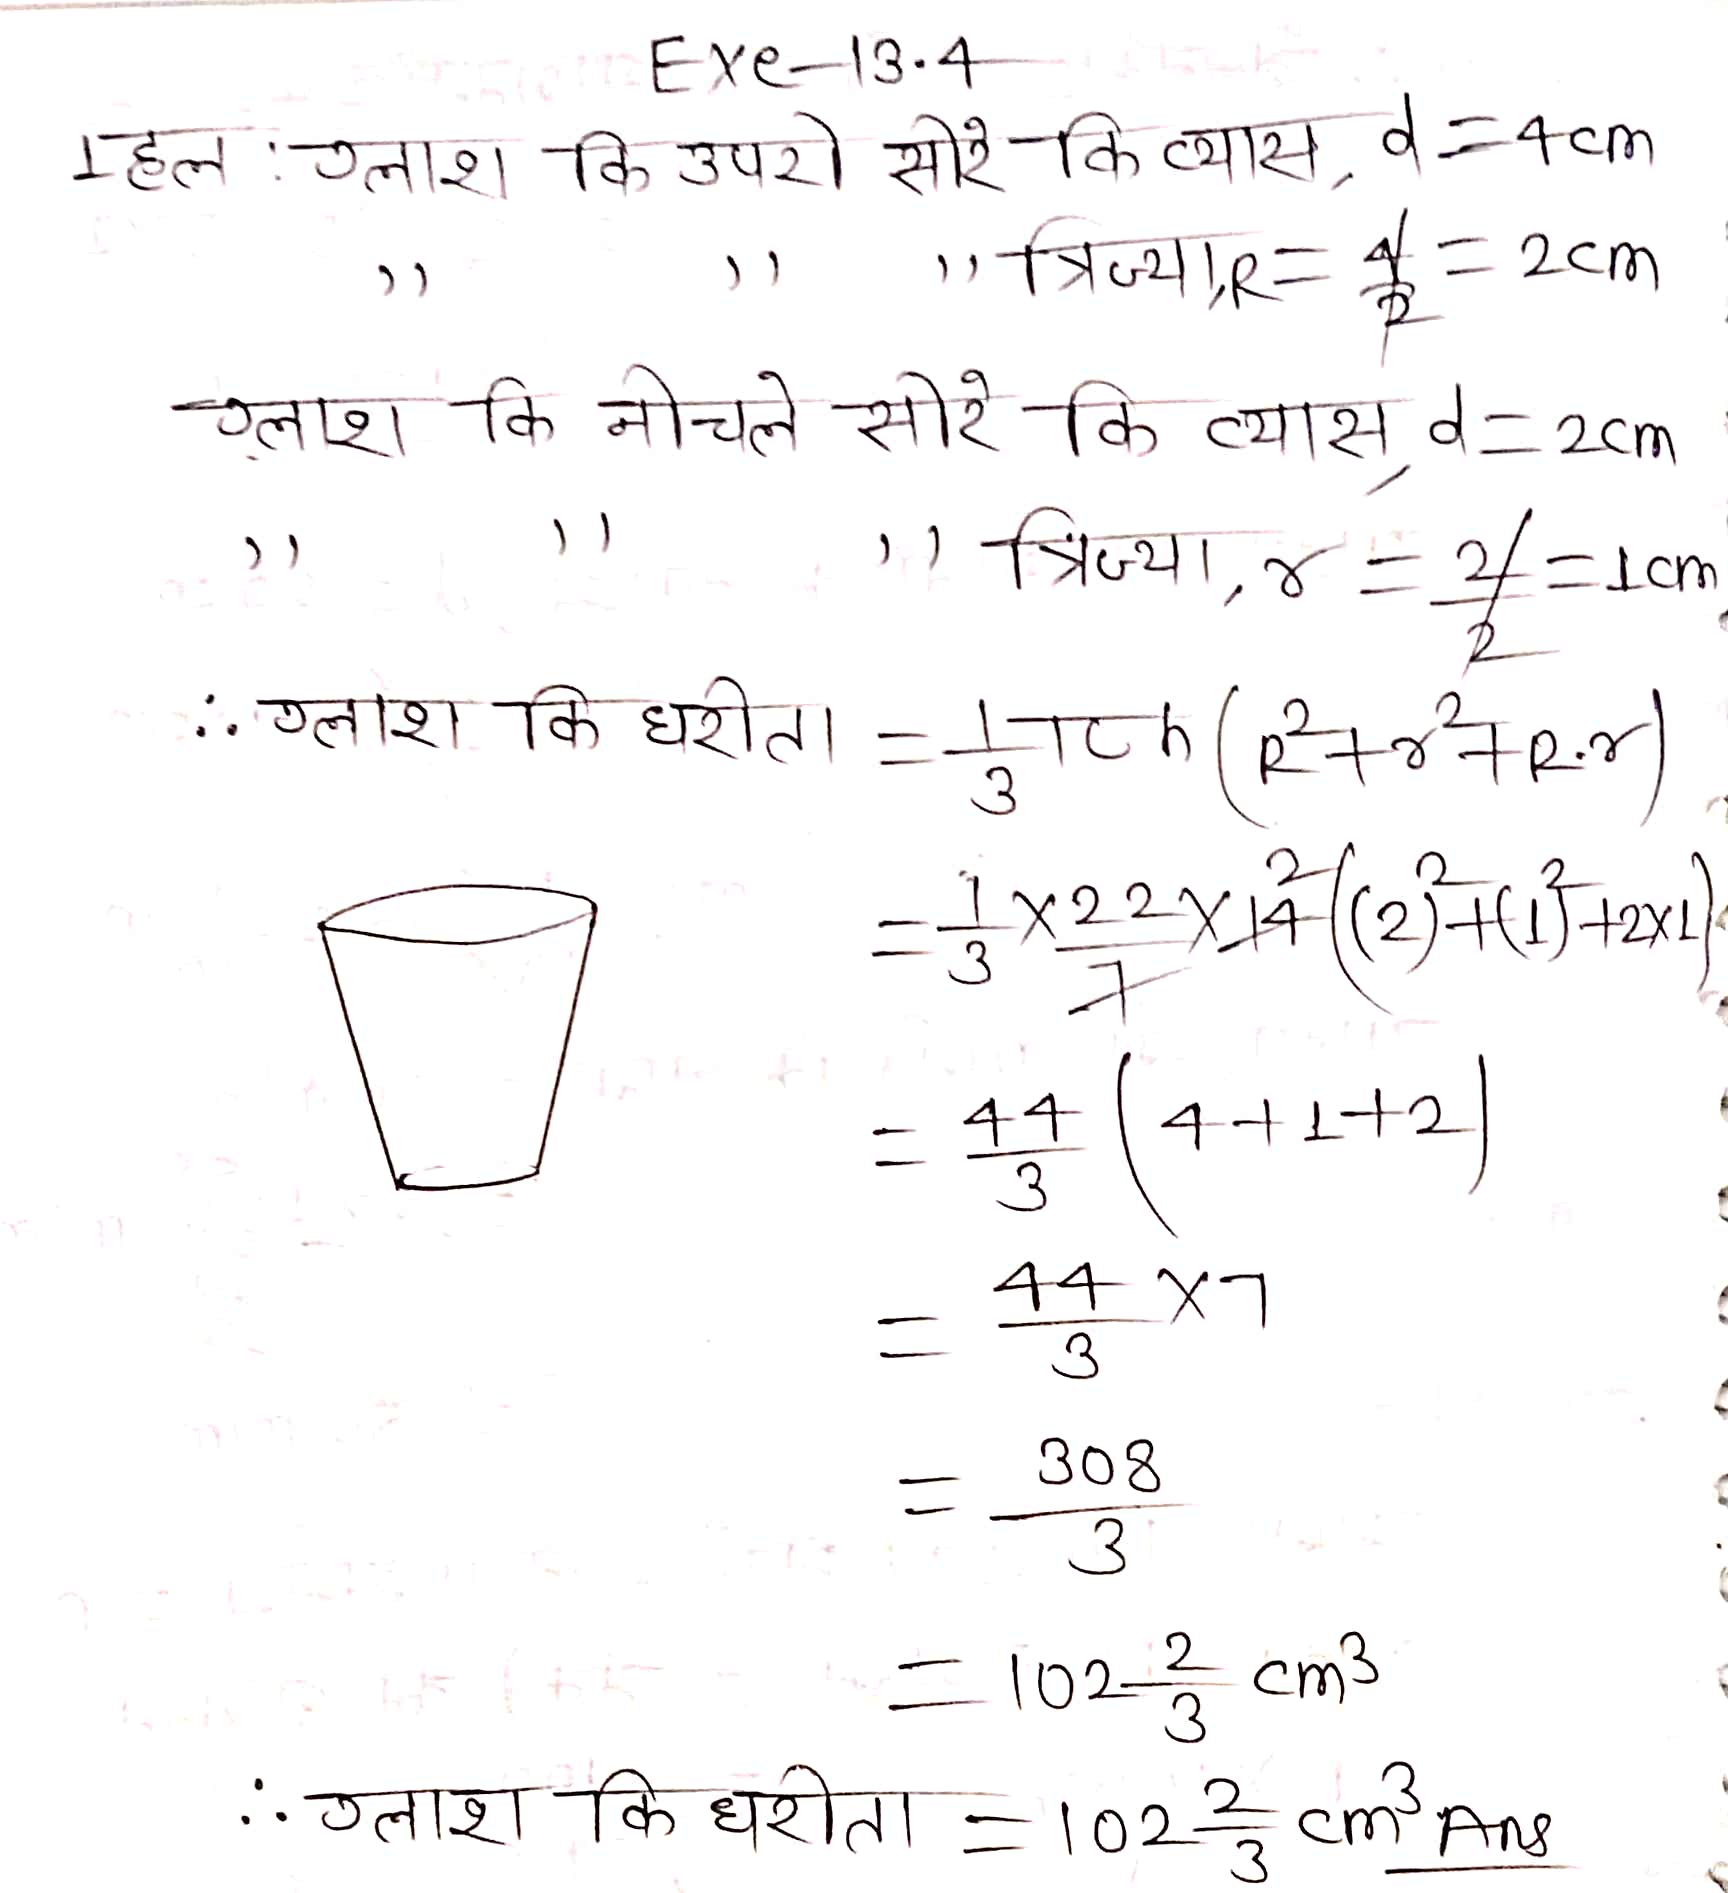 Exe-13.4
1हल : ग्लाश कि उपरी सीरे कि व्यास, d = 4cm
,, ,, ,, त्रिज्या, R = 4/2 = 2cm
ग्लाश कि नीचले सीरे कि व्यास, d = 2cm
,, ,, ,, त्रिज्या, r = 2/2 = 1cm
∴ ग्लाश कि धरीता = 1/3 πh (R²+r²+R.r)
= 1/3 × 22/7 × 14 2 ((2)²+(1)²+2×1)
= 44/3 (4+1+2)
= 44/3 × 7
= 308/3
= 102 2/3 cm³
∴ ग्लाश कि धरीता = 102 2/3 cm³ Ans